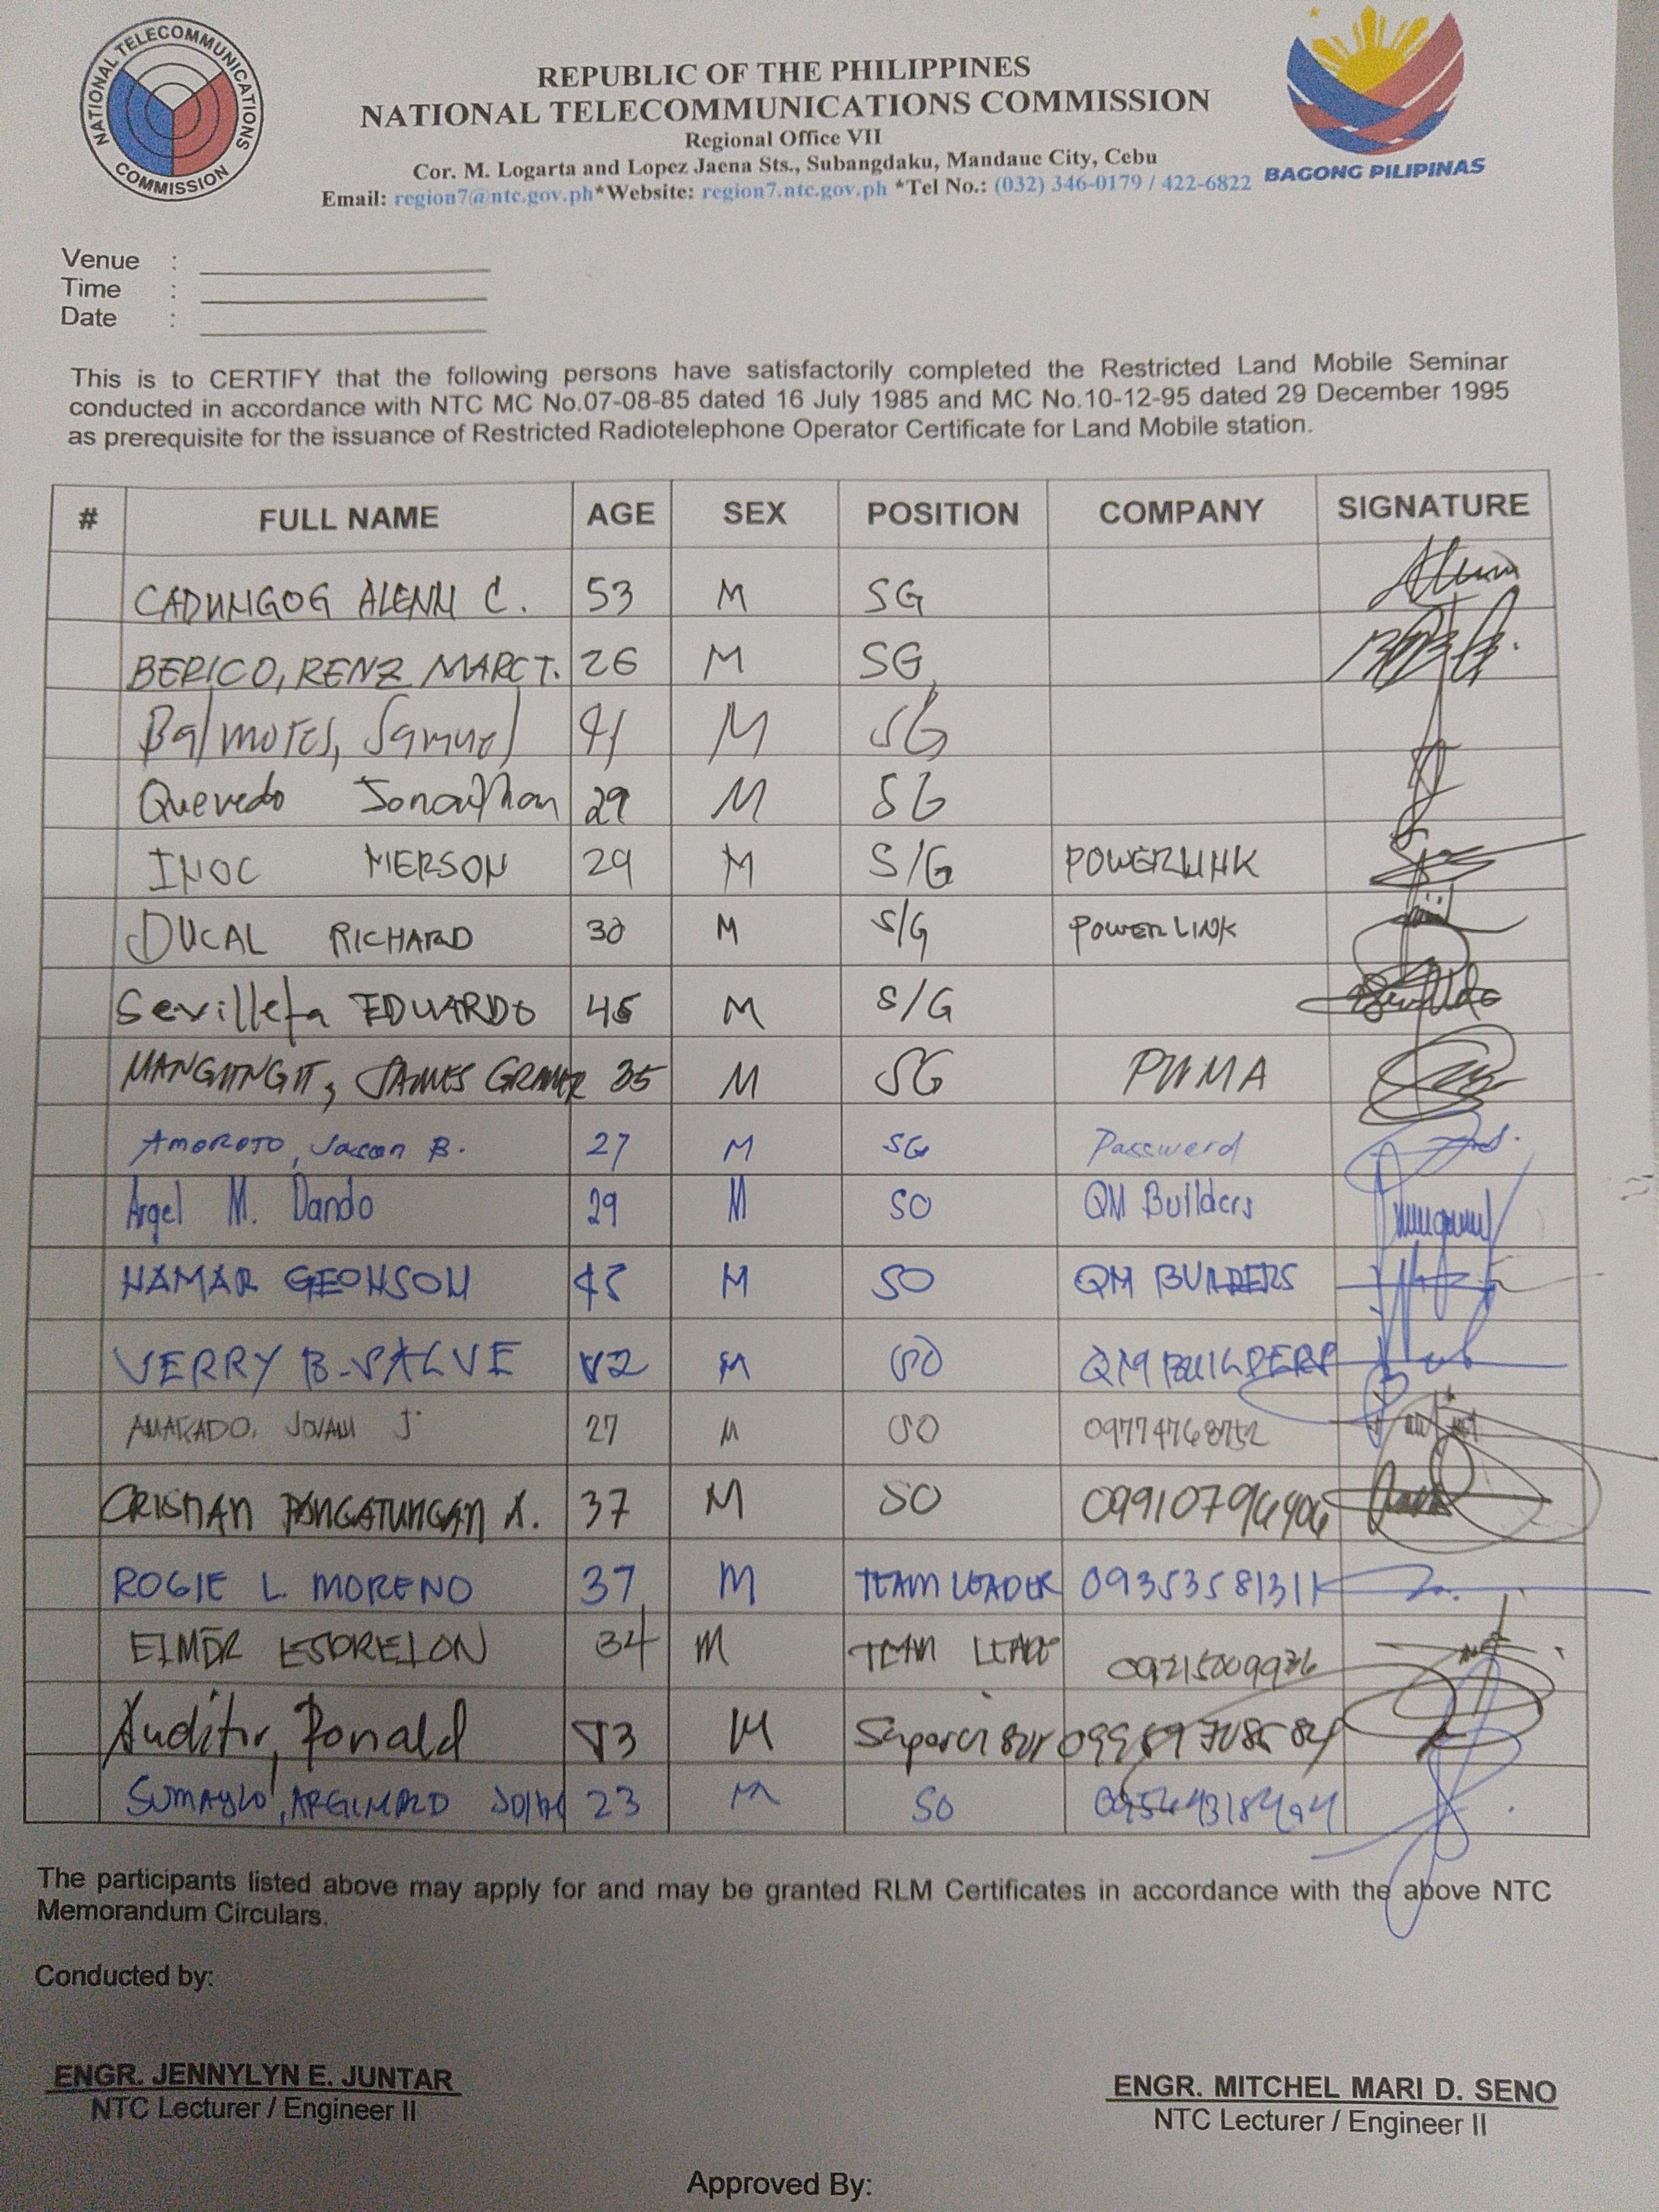 NATIONAL TELECOMMUNICATIONS COMMISSION
REPUBLIC OF THE PHILIPPINES
NATIONAL TELECOMMUNICATIONS COMMISSION
Regional Office VII
Cor. M. Logarta and Lopez Jaena Sts., Subangdaku, Mandaue City, Cebu
Email: region7@ntc.gov.ph*Website: region7.ntc.gov.ph *Tel No.: (032) 346-0179 / 422-6822
BAGONG PILIPINAS
Venue :
Time :
Date :
This is to CERTIFY that the following persons have satisfactorily completed the Restricted Land Mobile Seminar
conducted in accordance with NTC MC No.07-08-85 dated 16 July 1985 and MC No.10-12-95 dated 29 December 1995
as prerequisite for the issuance of Restricted Radiotelephone Operator Certificate for Land Mobile station.
# FULL NAME AGE SEX POSITION COMPANY SIGNATURE
CADUNGOG ALENN C. 53 M SG
BERICO, RENZ MARC T. 26 M SG
Balmores, Samuel 41 M SG
Quevedo Jonathan 29 M SG
INOC MERSON 29 M S/G POWERLINK
DUCAL RICHARD 30 M S/G POWERLINK
Sevilleta EDUARDO M S/G
JAMES 35 M SG PNMA
AMOROTO, Jason B. 27 M SG Password
Argel M. Dando 29 M SO QM Builders
HAMAR GEONSON 45 M SO QM BUILDERS
VERRY B. SALVE M SO QM BUILDERS
JOVANI J. 27 M SO
CRISTIAN PANGATUNGAN A. 37 M SO
ROGIE L. MORENO 37 M TEAM LEADER
ELMER ESORELON 34 M TEAM
Auditor, Ronald M
23 M SO
The participants listed above may apply for and may be granted RLM Certificates in accordance with the above NTC
Memorandum Circulars.
Conducted by:
ENGR. JENNYLYN E. JUNTAR
NTC Lecturer / Engineer II
ENGR. MITCHEL MARI D. SENO
NTC Lecturer / Engineer II
Approved By: